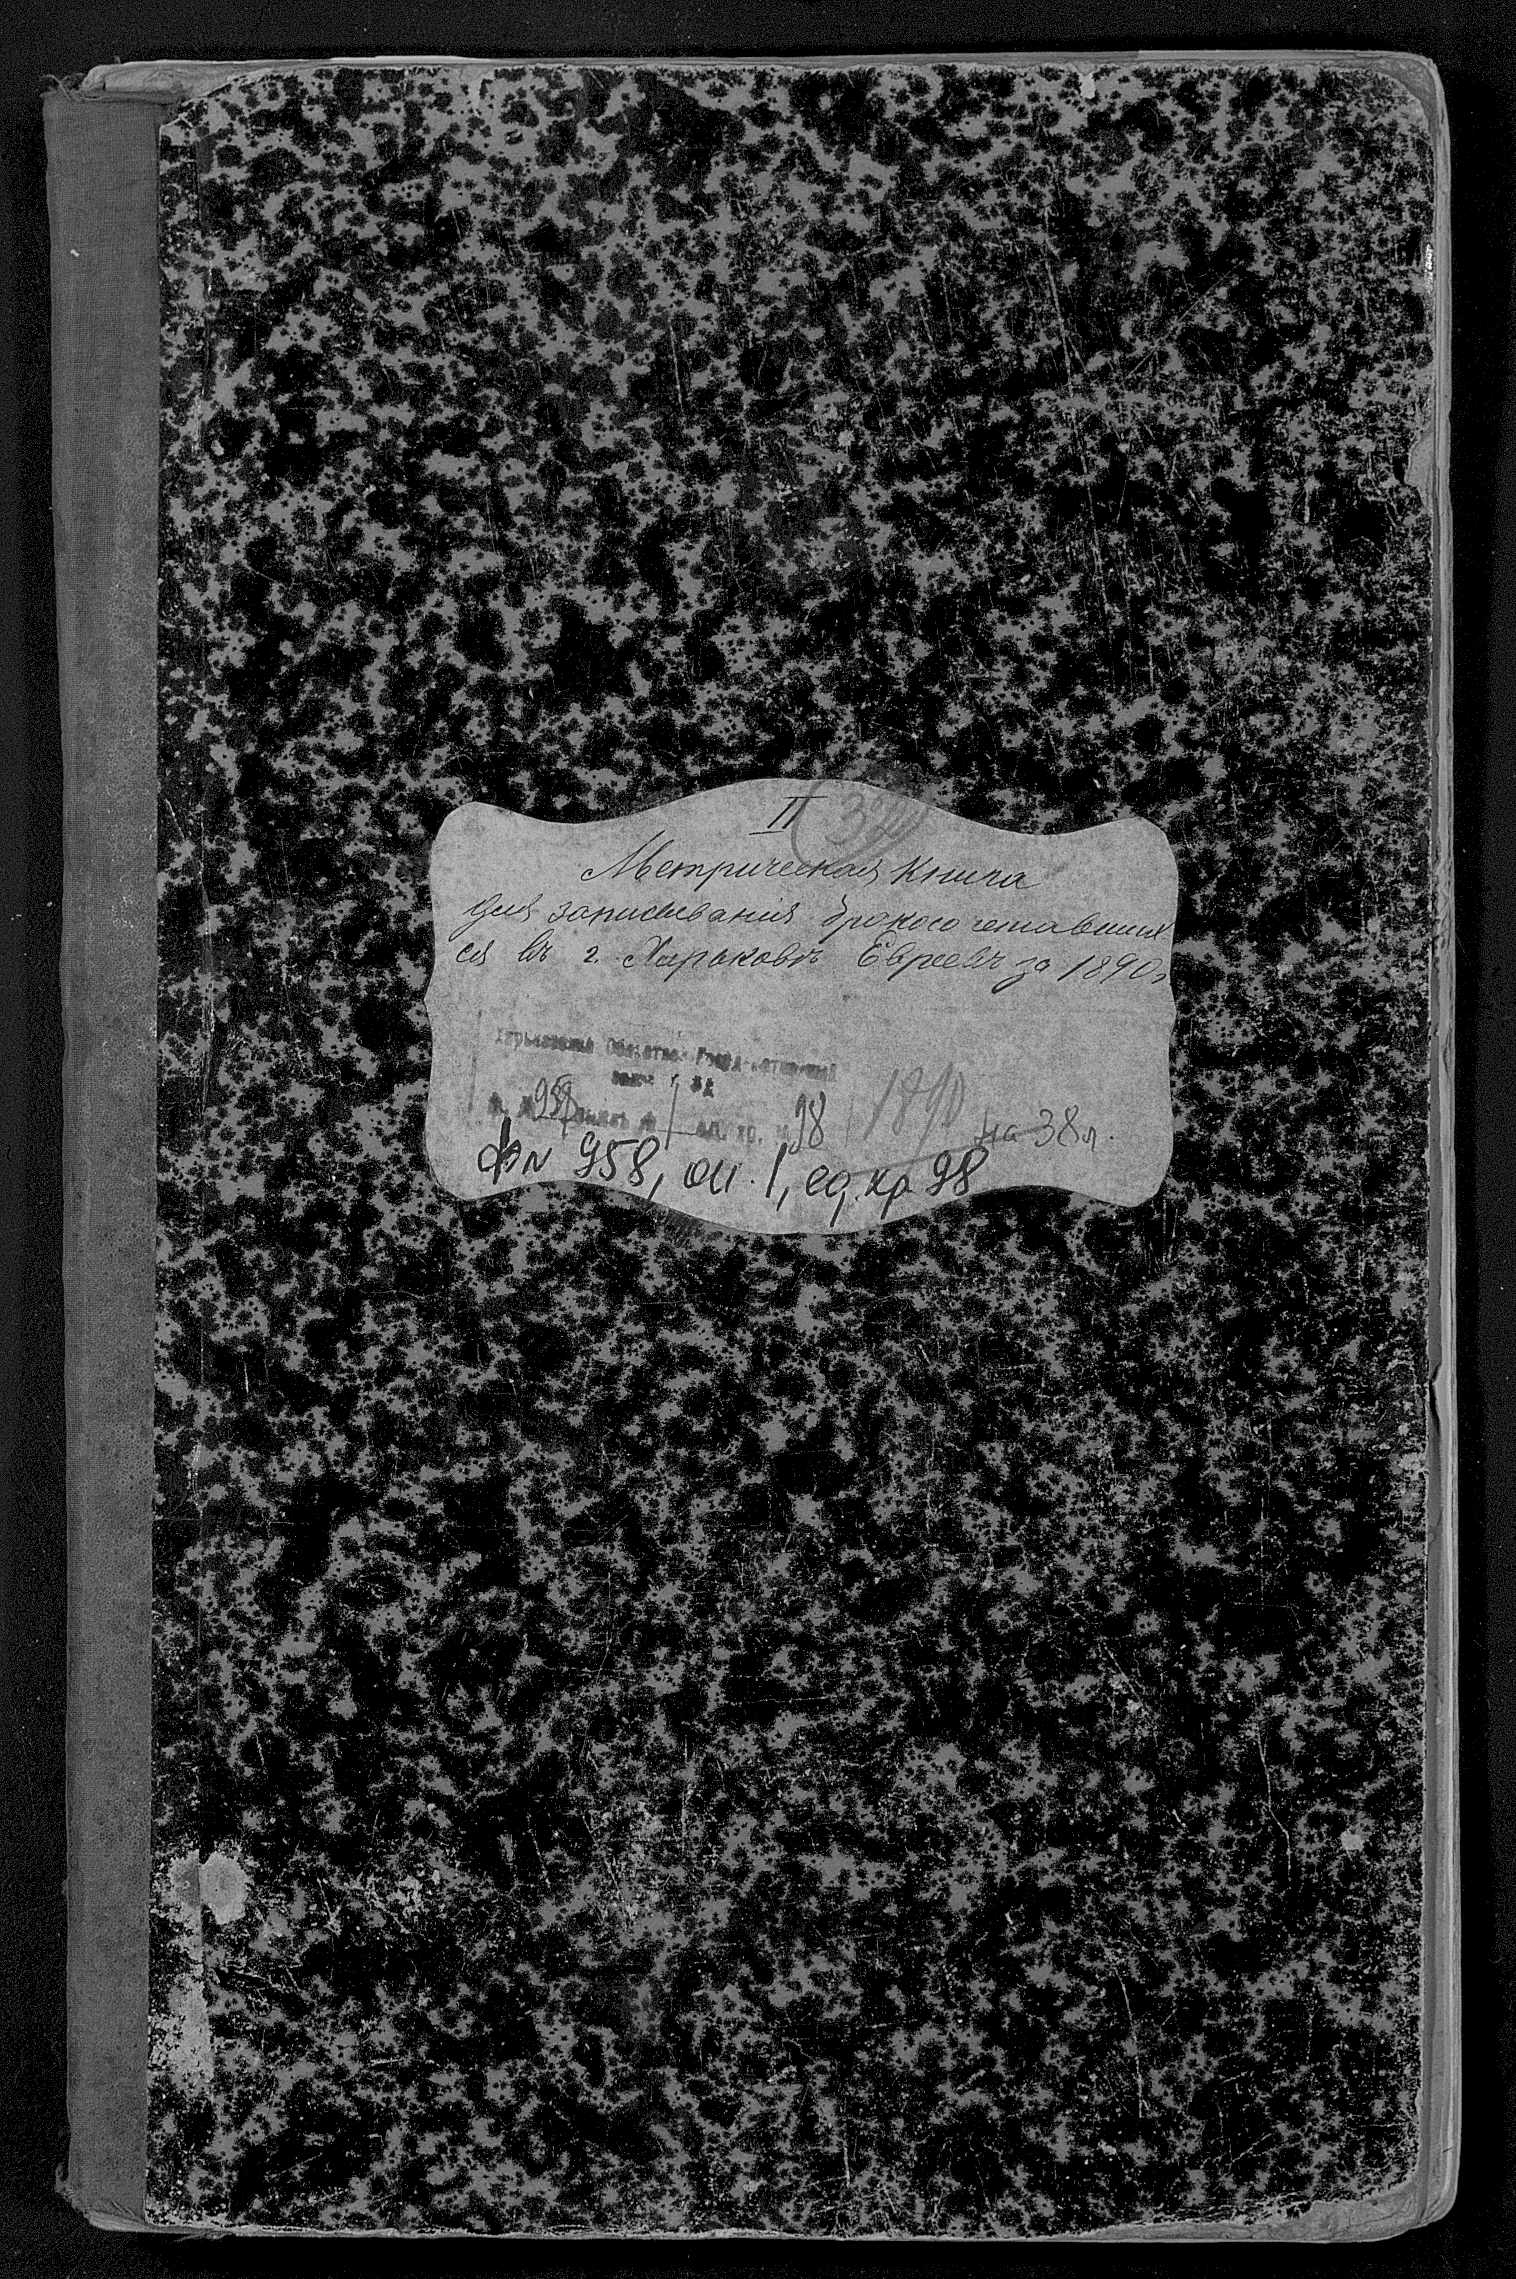 II 32
Метрическая Книга
для записыванія бракосочетавших
ся въ г. Харьковѣ Евреевъ за 1890 г
Харьковский Областной Государственный
958 1 98 1890 на 38 л.
ф N 958, оп. 1, ед. хр. 98